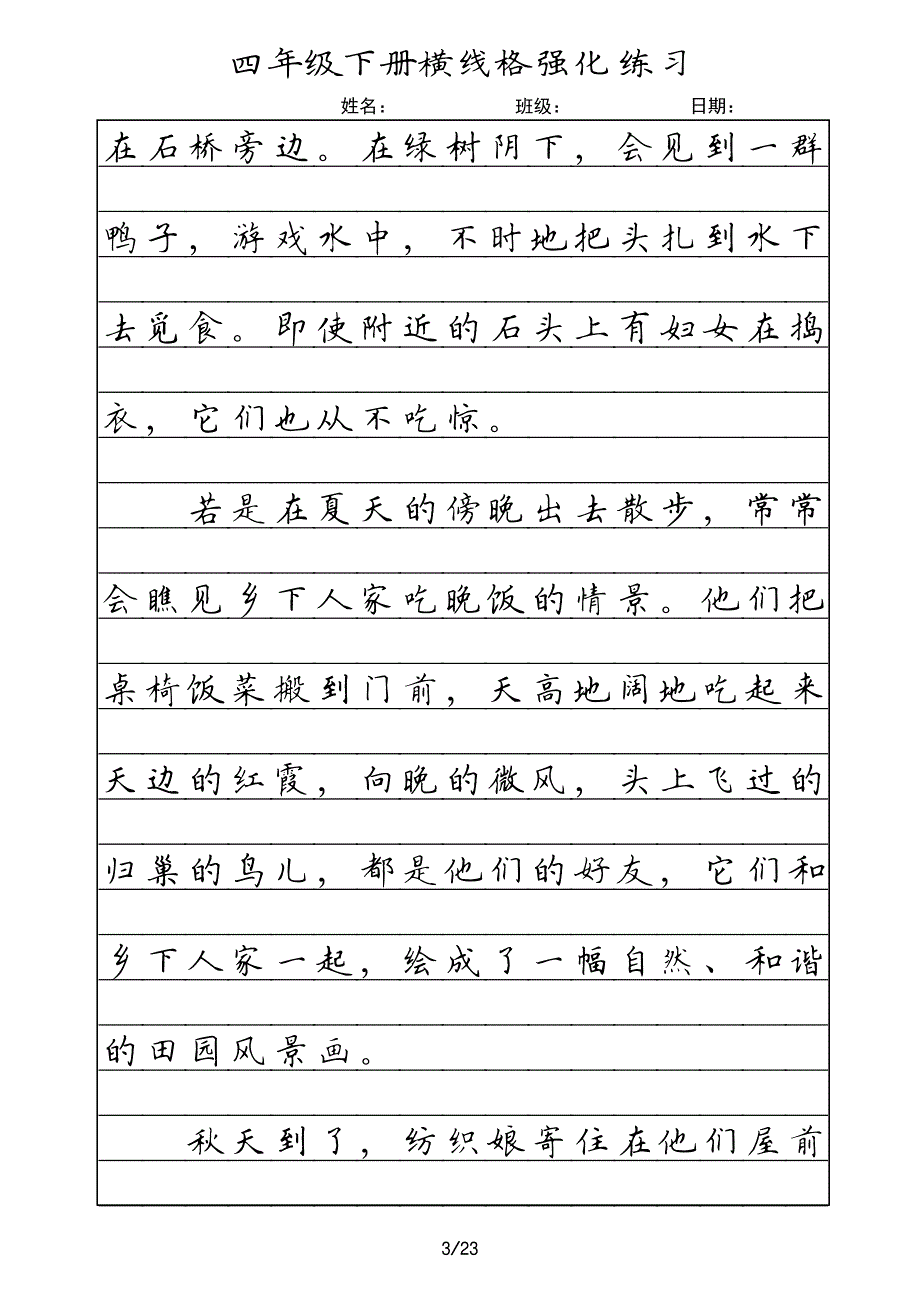 四年级下册横线格强化练习
姓名： 班级： 日期：
在石桥旁边。在绿树阴下，会见到一群
鸭子，游戏水中，不时地把头扎到水下
去觅食。即使附近的石头上有妇女在捣
衣，它们也从不吃惊。
若是在夏天的傍晚出去散步，常常
会瞧见乡下人家吃晚饭的情景。他们把
桌椅饭菜搬到门前，天高地阔地吃起来
天边的红霞，向晚的微风，头上飞过的
归巢的鸟儿，都是他们的好友，它们和
乡下人家一起，绘成了一幅自然、和谐
的田园风景画。
秋天到了，纺织娘寄住在他们屋前
3/23